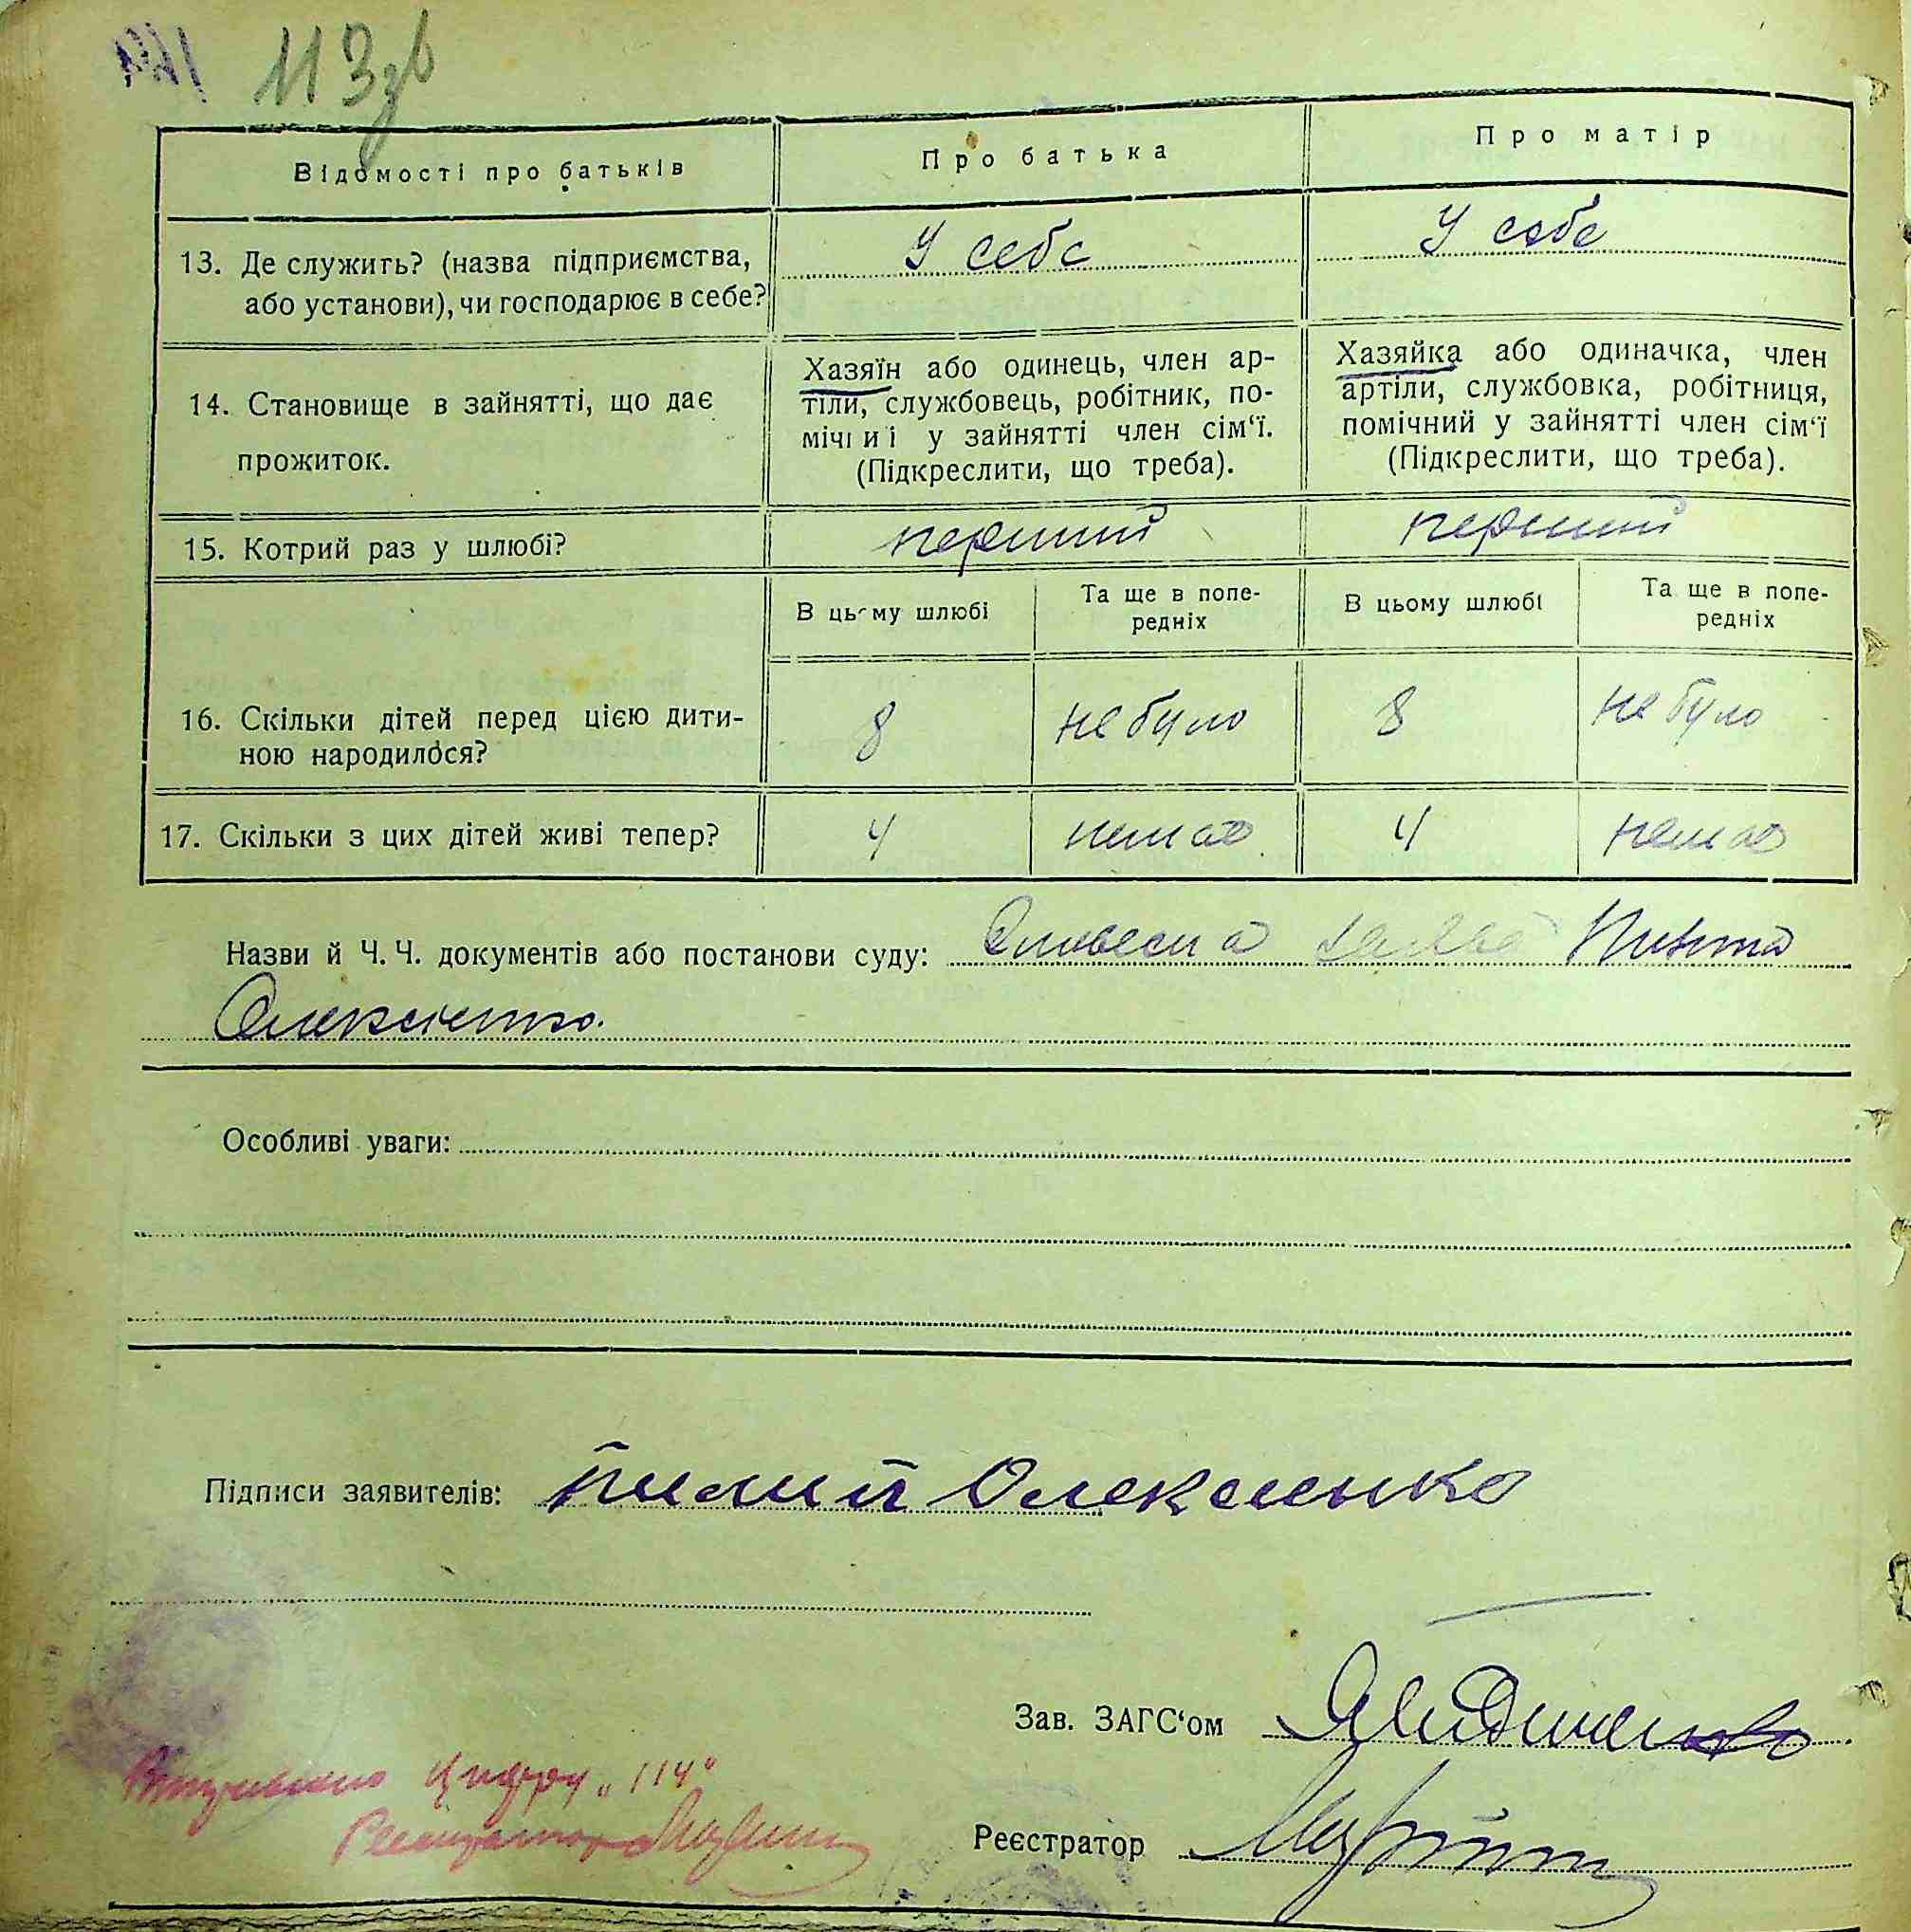 113зв
Відомості про батьків
Про батька
Про матір
13. Де служить? (назва підприємства,
або установи), чи господарює в себе?
У себе
У себе
14. Становище в зайнятті, що дає
прожиток.
Хазяїн або одинець, член ар-
тіли, службовець, робітник, по-
мічний у зайнятті член сім'ї.
(Підкреслити, що треба).
Хазяйка або одиначка, член
артіли, службовка, робітниця,
помічний у зайнятті член сім'ї
(Підкреслити, що треба).
15. Котрий раз у шлюбі?
перший
перший
В цьому шлюбі
Та ще в попе-
редніх
В цьому шлюбі
Та ще в попе-
редніх
16. Скільки дітей перед цією дити-
ною народилося?
8
не було
8
не було
17. Скільки з цих дітей живі тепер?
4
немає
4
немає
Назви й Ч. Ч. документів або постанови суду: Словесна заява
Олексієнко.
Особливі уваги:
Підписи заявителів: Пилип Олексієнко
Зав. ЗАГС'ом
Реєстратор
цифру „114"